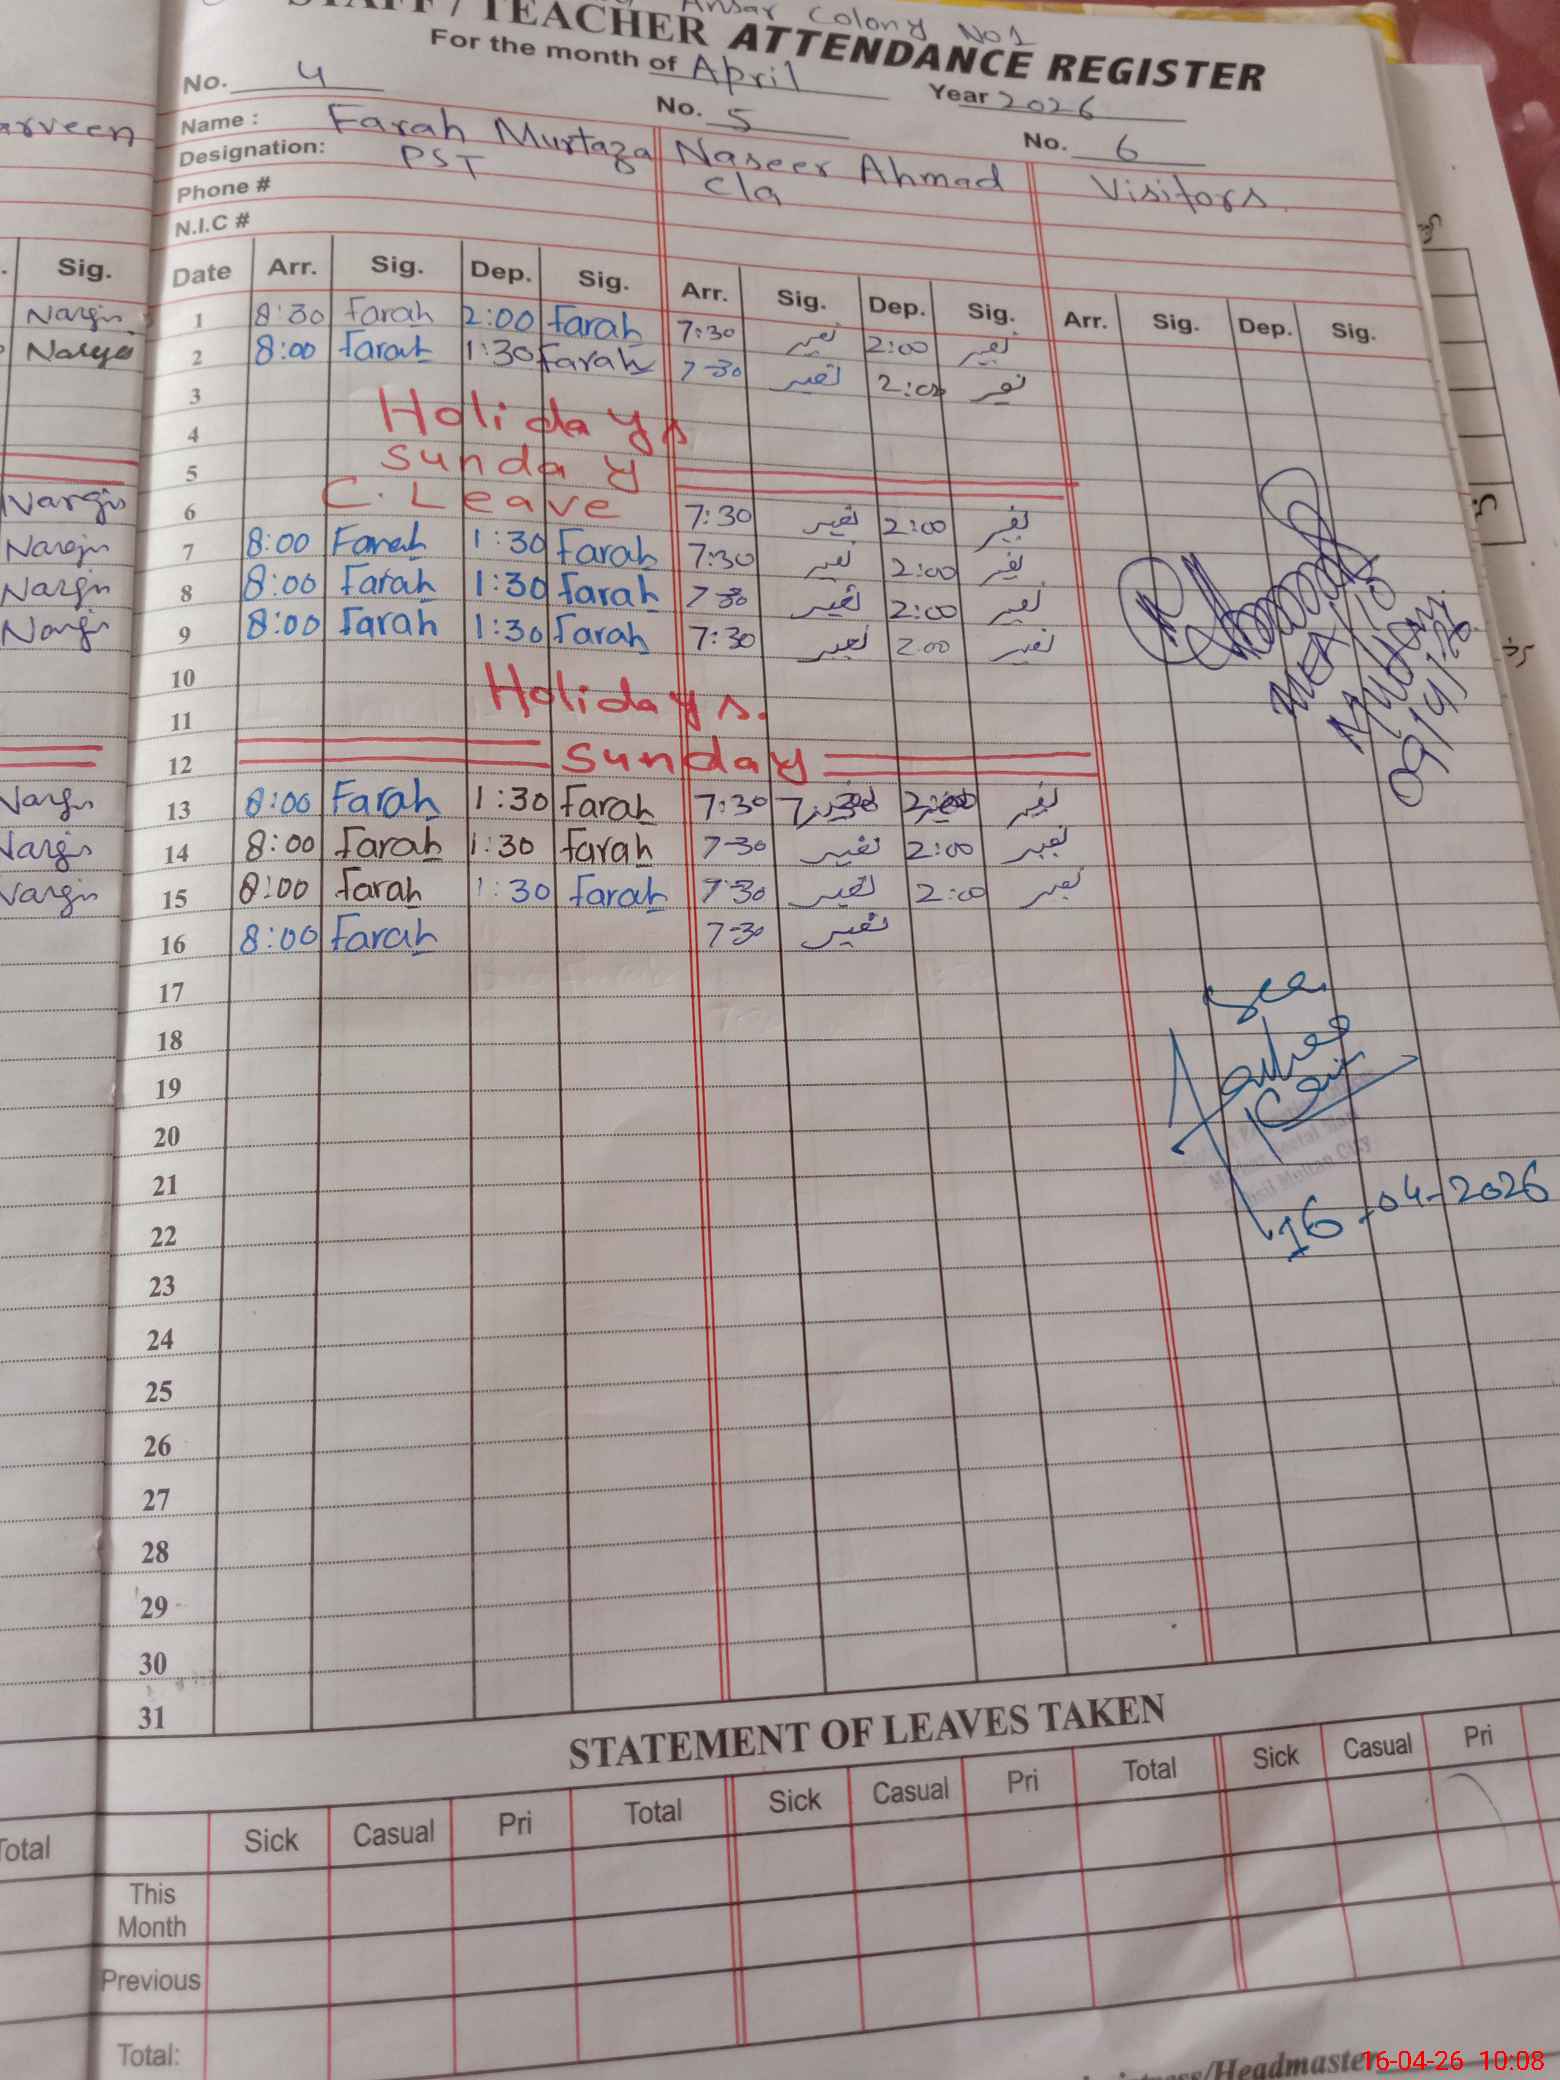 Ansar Colony No1
STAFF / TEACHER ATTENDANCE REGISTER
For the month of April Year 2026
No. 4 No. 5 No. 6
Name : Farah Murtaza Naseer Ahmad Visitors
Designation: PST C/a
Phone #
N.I.C #
Sig. Date Arr. Sig. Dep. Sig. Arr. Sig. Dep. Sig. Arr. Sig. Dep. Sig.
Nargis 1 8:30 Farah 2:00 Farah 7:30 نصیر 2:00 نصیر
2 8:00 Farah 1:30 Farah 7-30 نصیر 2:00 نصیر
3
Holidays
4
5 Sunday
Nargis 6 C. Leave 7:30 نصیر 2:00 نصیر
Nargis 7 8:00 Farah 1:30 Farah 7:30 نصیر 2:00 نصیر
Nargis 8 8:00 Farah 1:30 Farah 7-30 نصیر 2:00 نصیر
Nargis 9 8:00 Farah 1:30 Farah 7:30 نصیر 2:00 نصیر
10
Holidays.
11
12 Sunday
Nargis 13 8:00 Farah 1:30 Farah 7:30 نصیر
Nargis 14 8:00 Farah 1:30 Farah 7-30 نصیر 2:00 نصیر
Nargis 15 8:00 Farah 1:30 Farah 7:30 نصیر 2:00 نصیر
16 8:00 Farah 7-30 نصیر
17
18
19
20
21
22
23
24
25
26
27
28
29
30
31
MEA
09/4/26
See
16-04-2026
Tehsil Multan City
STATEMENT OF LEAVES TAKEN
Total Sick Casual Pri Total Sick Casual Pri Total Sick Casual Pri
This
Month
Previous
Total:
/Headmaster
16-04-26 10:08